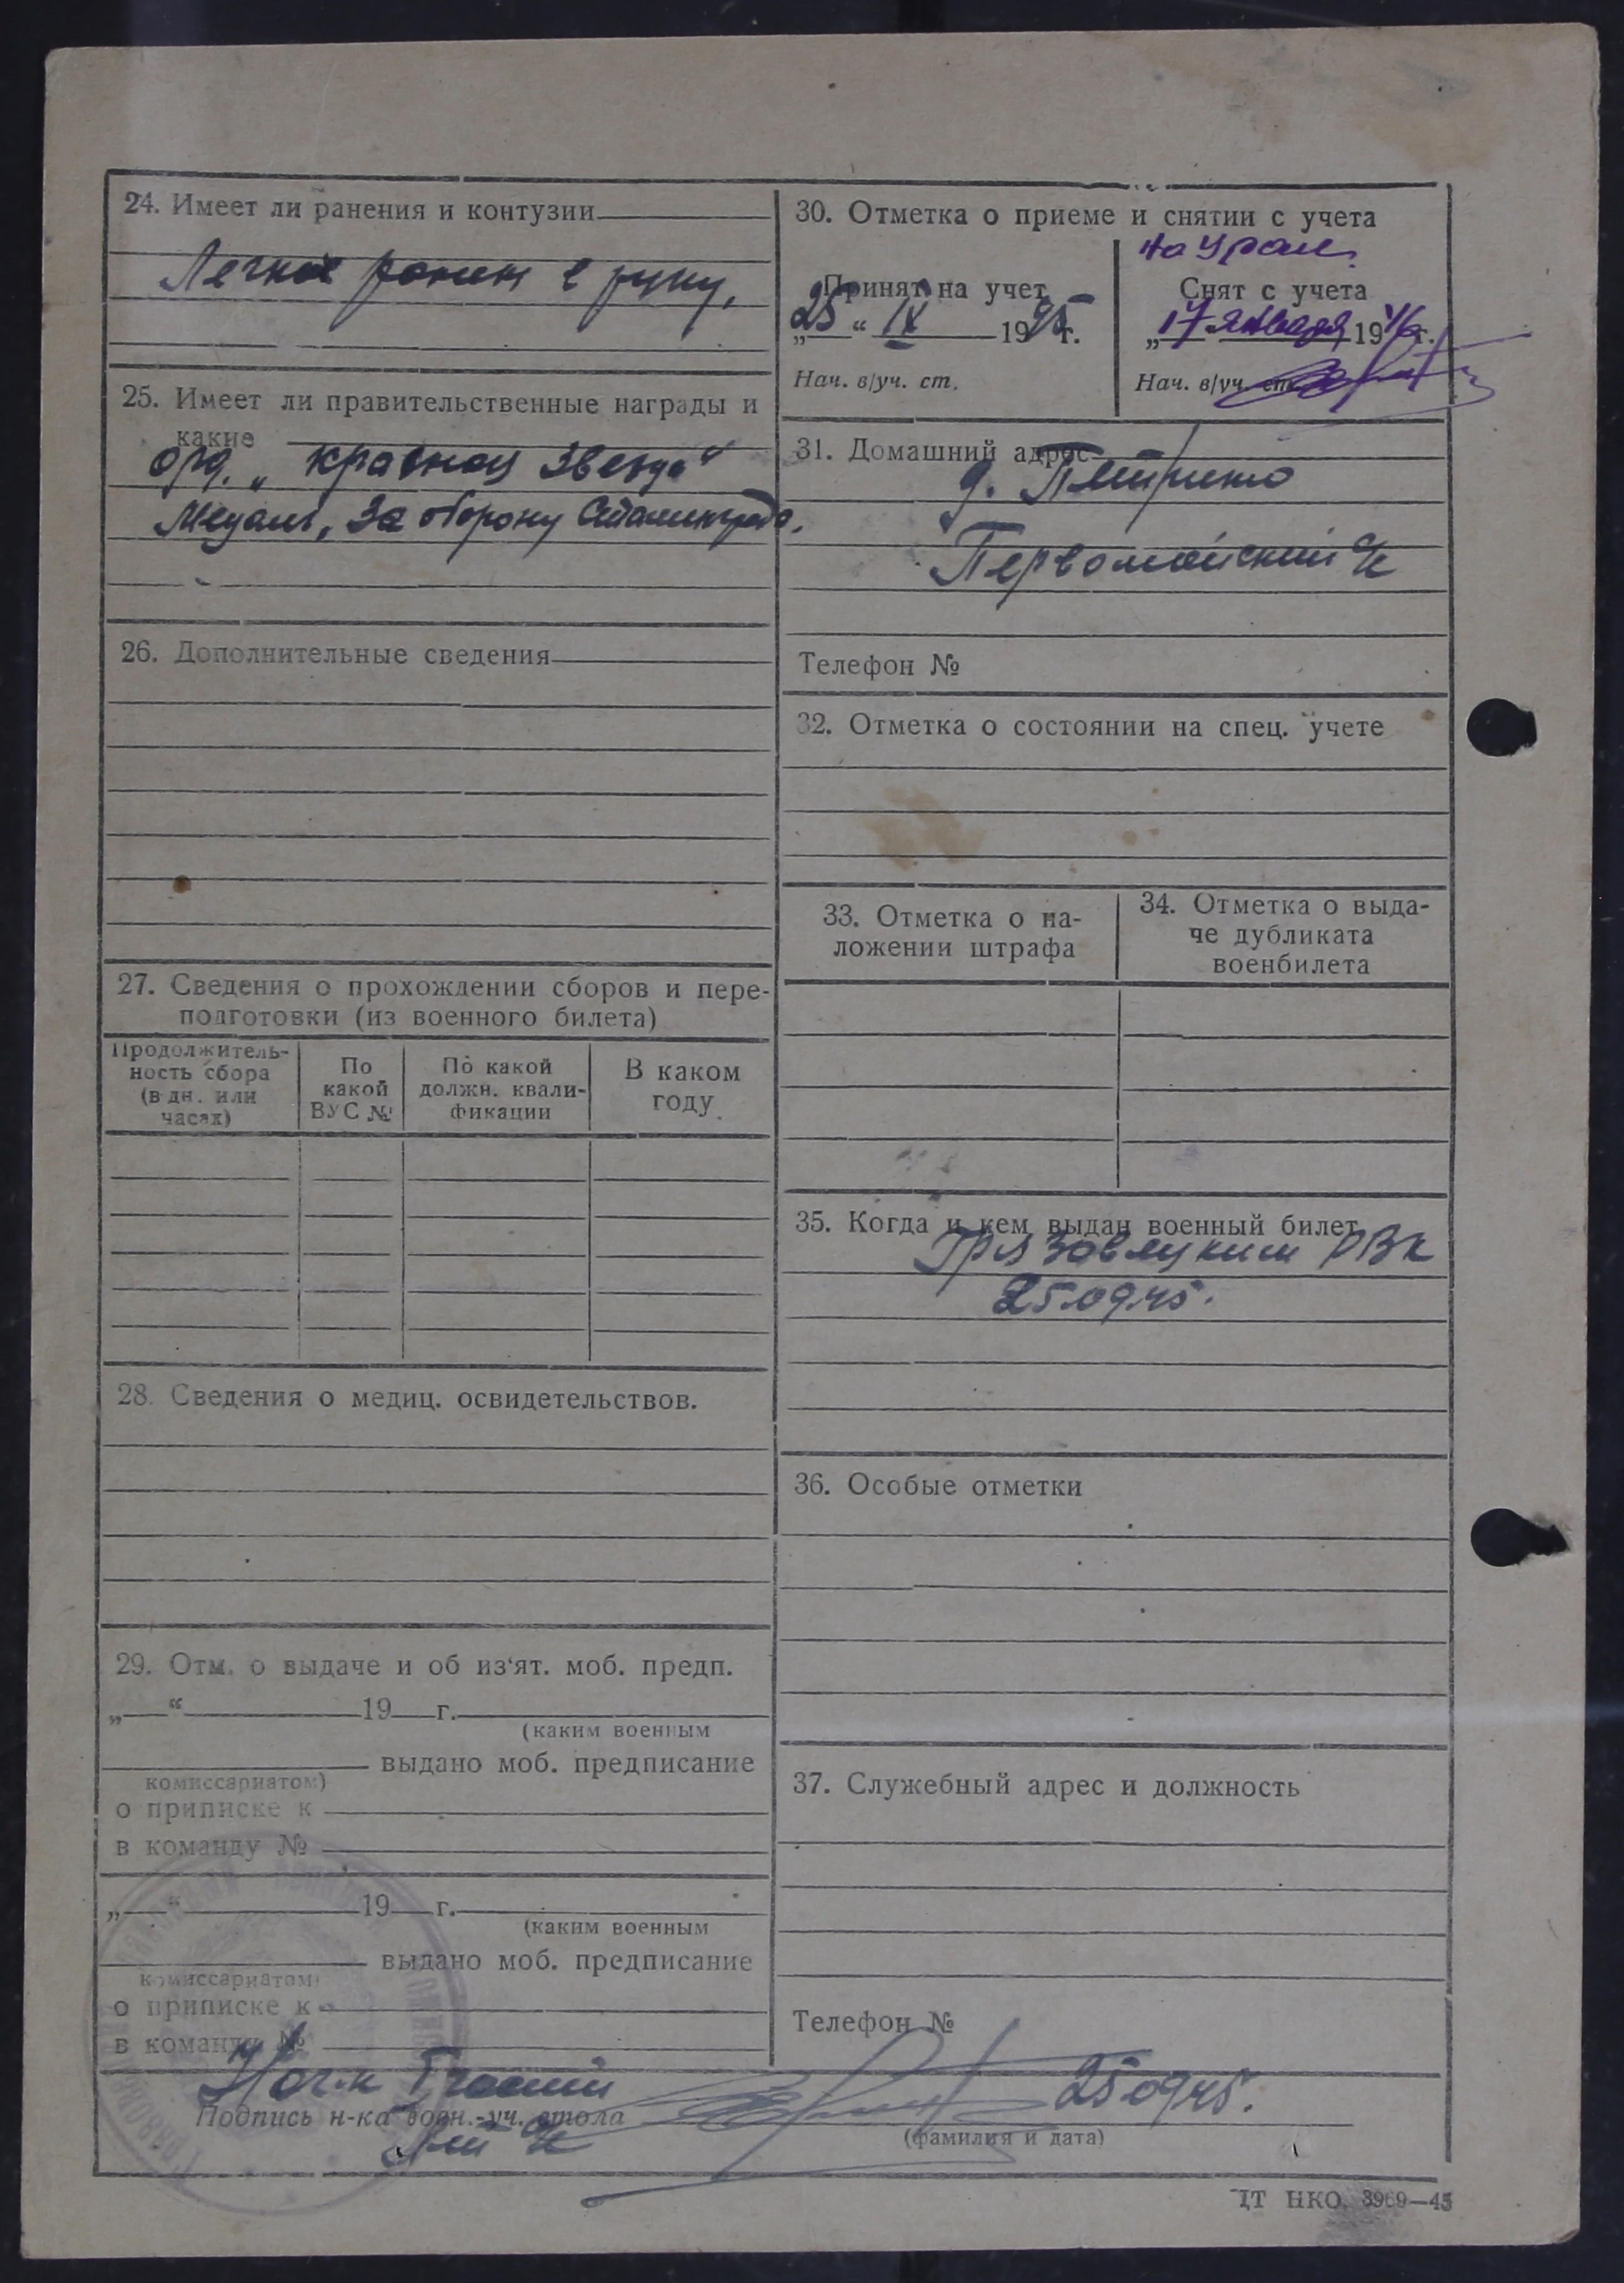 24. Имеет ли ранения и контузии
Легкое ранен в руку,
25. Имеет ли правительственные награды и
какие
орд. „Красная Звезда“
Медаль „За оборону Сталинграда.
26. Дополнительные сведения
27. Сведения о прохождении сборов и пере-
подготовки (из военного билета)
Продолжитель-
ность сбора
(в дн. или
часах)
По
какой
ВУС №
По какой
должн. квали-
фикации
В каком
году
28. Сведения о медиц. освидетельствов.
29. Отм. о выдаче и об из‘ят. моб. предп.
„ “ 19 г.
(каким военным
выдано моб. предписание
комиссариатом)
о приписке к
в команду №
„ “ 19 г.
(каким военным
выдано моб. предписание
комиссариатом)
о приписке к
в команду №
30. Отметка о приеме и снятии с учета
на Урал.
Принят на учет
25 “ IX 1945г.
Нач. в/уч. ст.
Снят с учета
„17 января 1946г.
Нач. в/уч. ст.
31. Домашний адрес
д.
Первомайский с/с
Телефон №
32. Отметка о состоянии на спец. учете
33. Отметка о на-
ложении штрафа
34. Отметка о выда-
че дубликата
военбилета
35. Когда и кем выдан военный билет
Грязовецким РВК
25.09.45.
36. Особые отметки
37. Служебный адрес и должность
Телефон №
Нач.
25.09.45.
Подпись н-ка воен.-уч. стола
(фамилия и дата)
ЦТ НКО. 3969—45